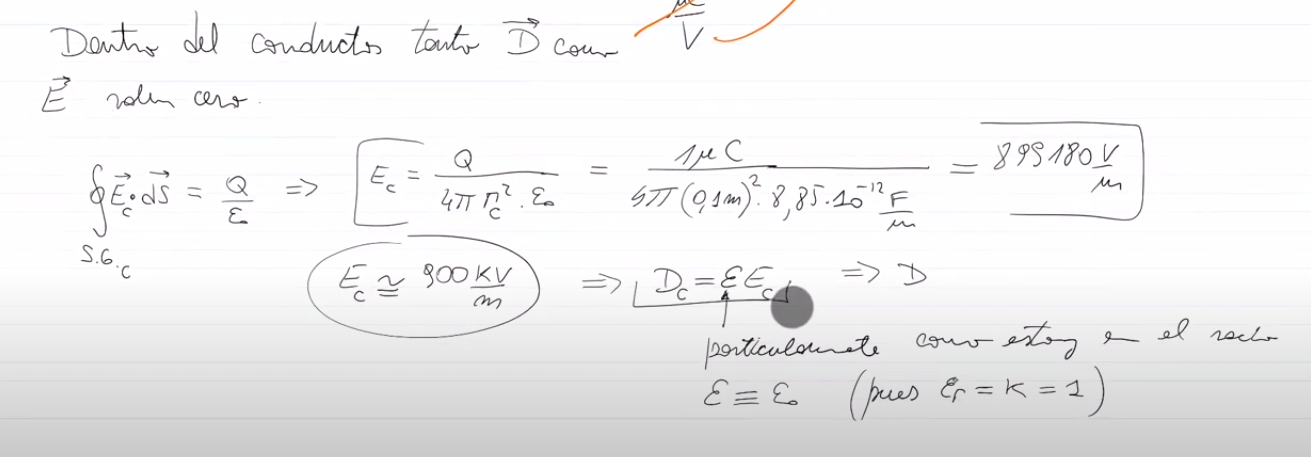 Dentro del conductor tanto D⃗ como μC/V
E⃗ valen cero.
∮ E⃗c • dS⃗ = Q/ε₀ => Ec = Q/(4π rc² . ε₀) = 1μC/(4π (0,1m)² . 8,85.10⁻¹² F/m) = 899180 V/m
S.G.c
Ec ≅ 900 KV/m => Dc = εEc => D
particularmente como estoy en el vacío
ε ≡ ε₀ (pues εr = K = 1)